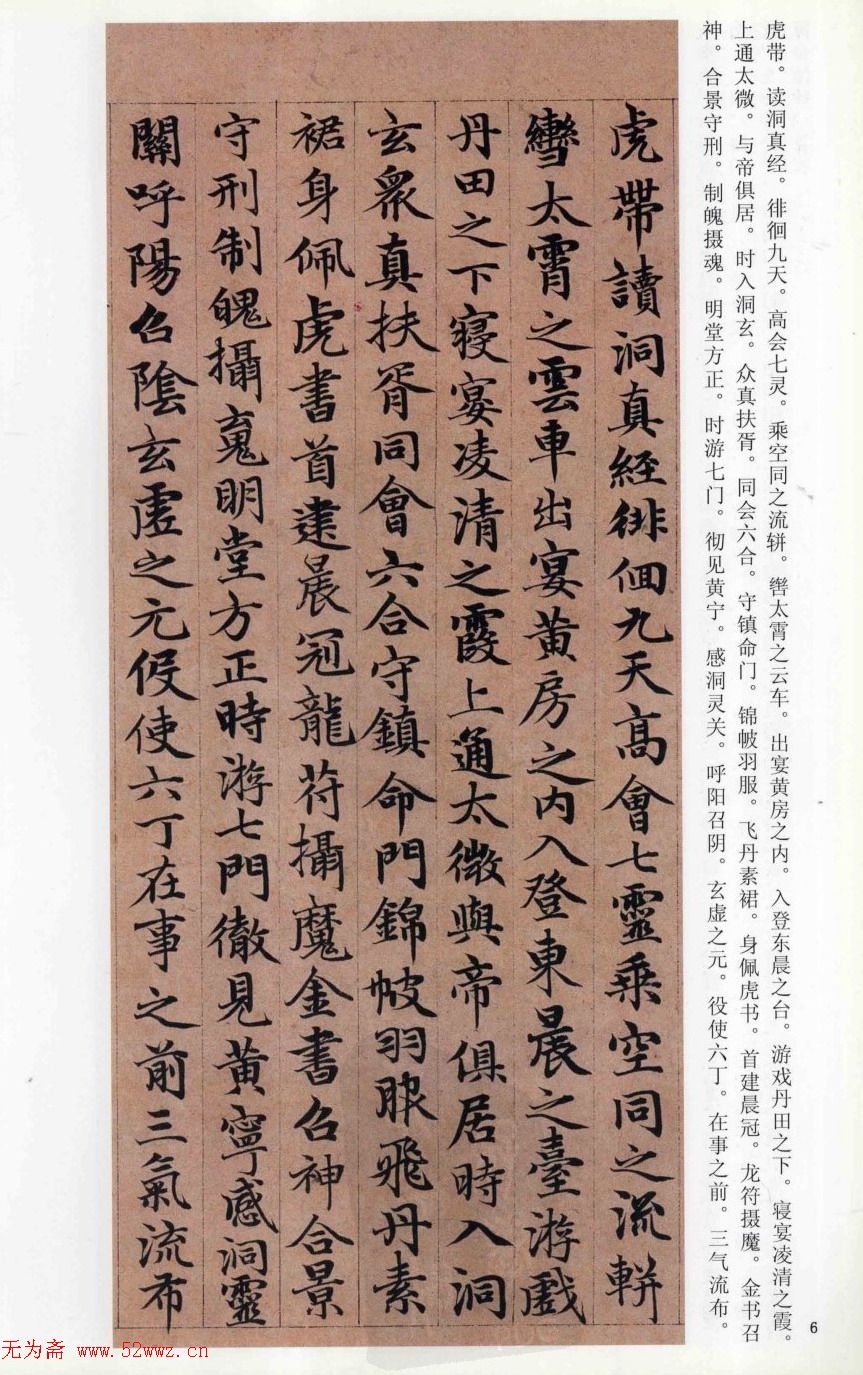 虎带。读洞真经。徘徊九天。高会七灵。乘空同之流軿。辔太霄之云车。出宴黄房之内。入登东晨之台。游戏丹田之下。寝宴凌清之霞。
上通太微。与帝俱居。时入洞玄。众真扶胥。同会六合。守镇命门。锦帔羽服。飞丹素裙。身佩虎书。首建晨冠。龙符摄魔。金书召
神。合景守刑。制魄摄魂。明堂方正。时游七门。彻见黄宁。感洞灵关。呼阳召阴。玄虚之元。役使六丁。在事之前。三气流布。
虎帶讀洞真經徘佪九天高會七靈乘空同之流軿
轡太霄之雲車出宴黄房之内入登東晨之臺游戲
丹田之下寝宴凌清之霞上通太微與帝俱居時入洞
玄衆真扶胥同會六合守鎮命門錦帔羽服飛丹素
裙身佩虎書首建晨冠龍符攝魔金書召神合景
守刑制魄攝魂明堂方正時游七門徹見黄寧感洞靈
關呼陽召陰玄虚之元役使六丁在事之前三氣流布
6
无为斋 www.52wwz.cn